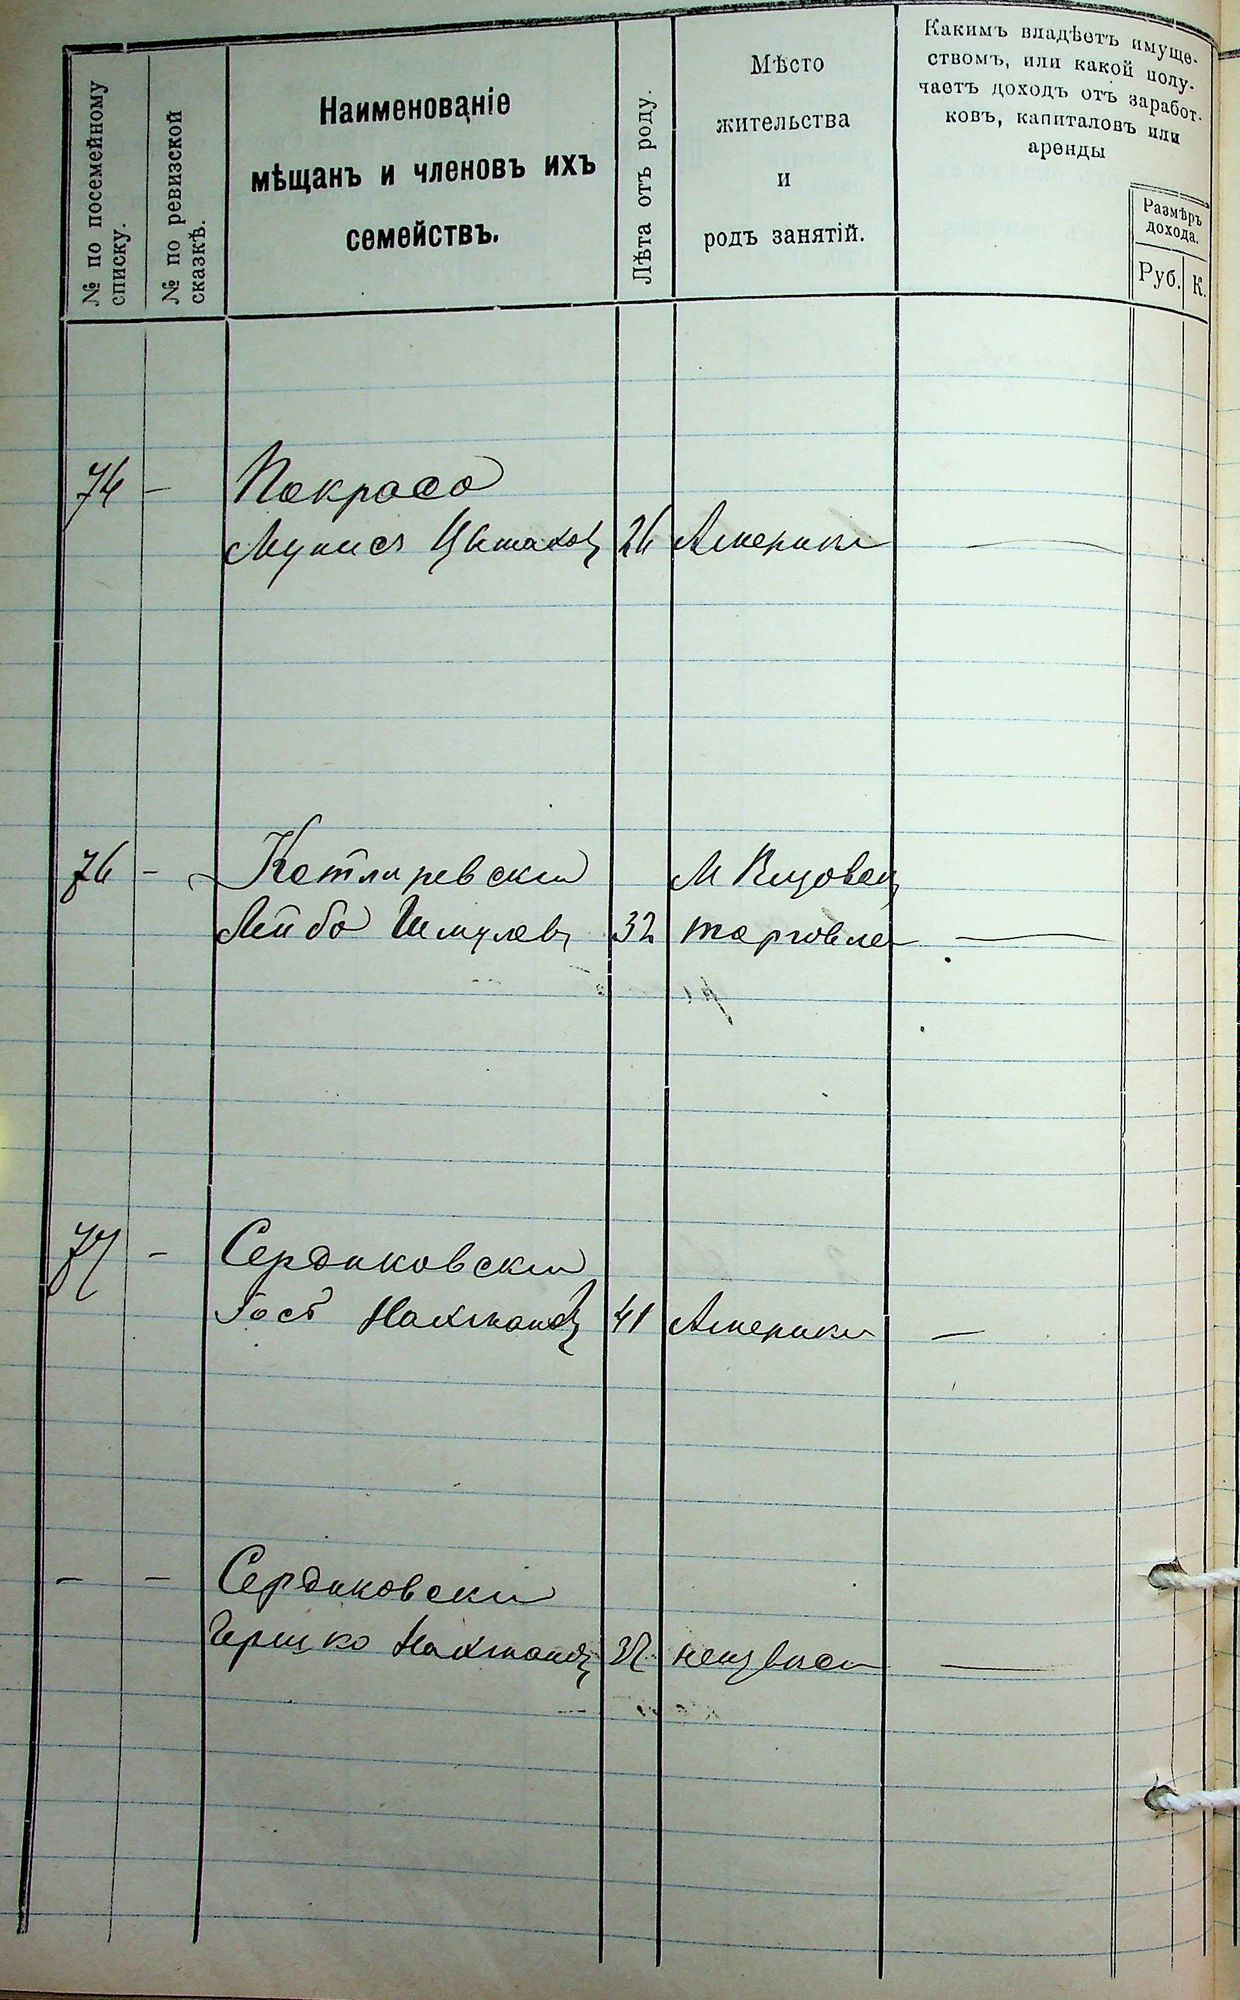 № по посемейному
списку.
№ по ревизской
сказкѣ.
Наименованіе
мѣщанъ и членовъ ихъ
семействъ.
Лѣта отъ роду.
Мѣсто
жительства
и
родъ занятій.
Какимъ владѣетъ имуще-
ствомъ, или какой полу-
чаетъ доходъ отъ заработ-
ковъ, капиталовъ или
аренды
Размѣръ
дохода.
Руб. К.
—
Америки —
76 — Котляревскій
Лейба Шмулев 32 торговля —
77 — Сердиковскій
Нахманов 41 Америки —
— — Сердиковскій
Гершко Нахманов неизвѣсн —